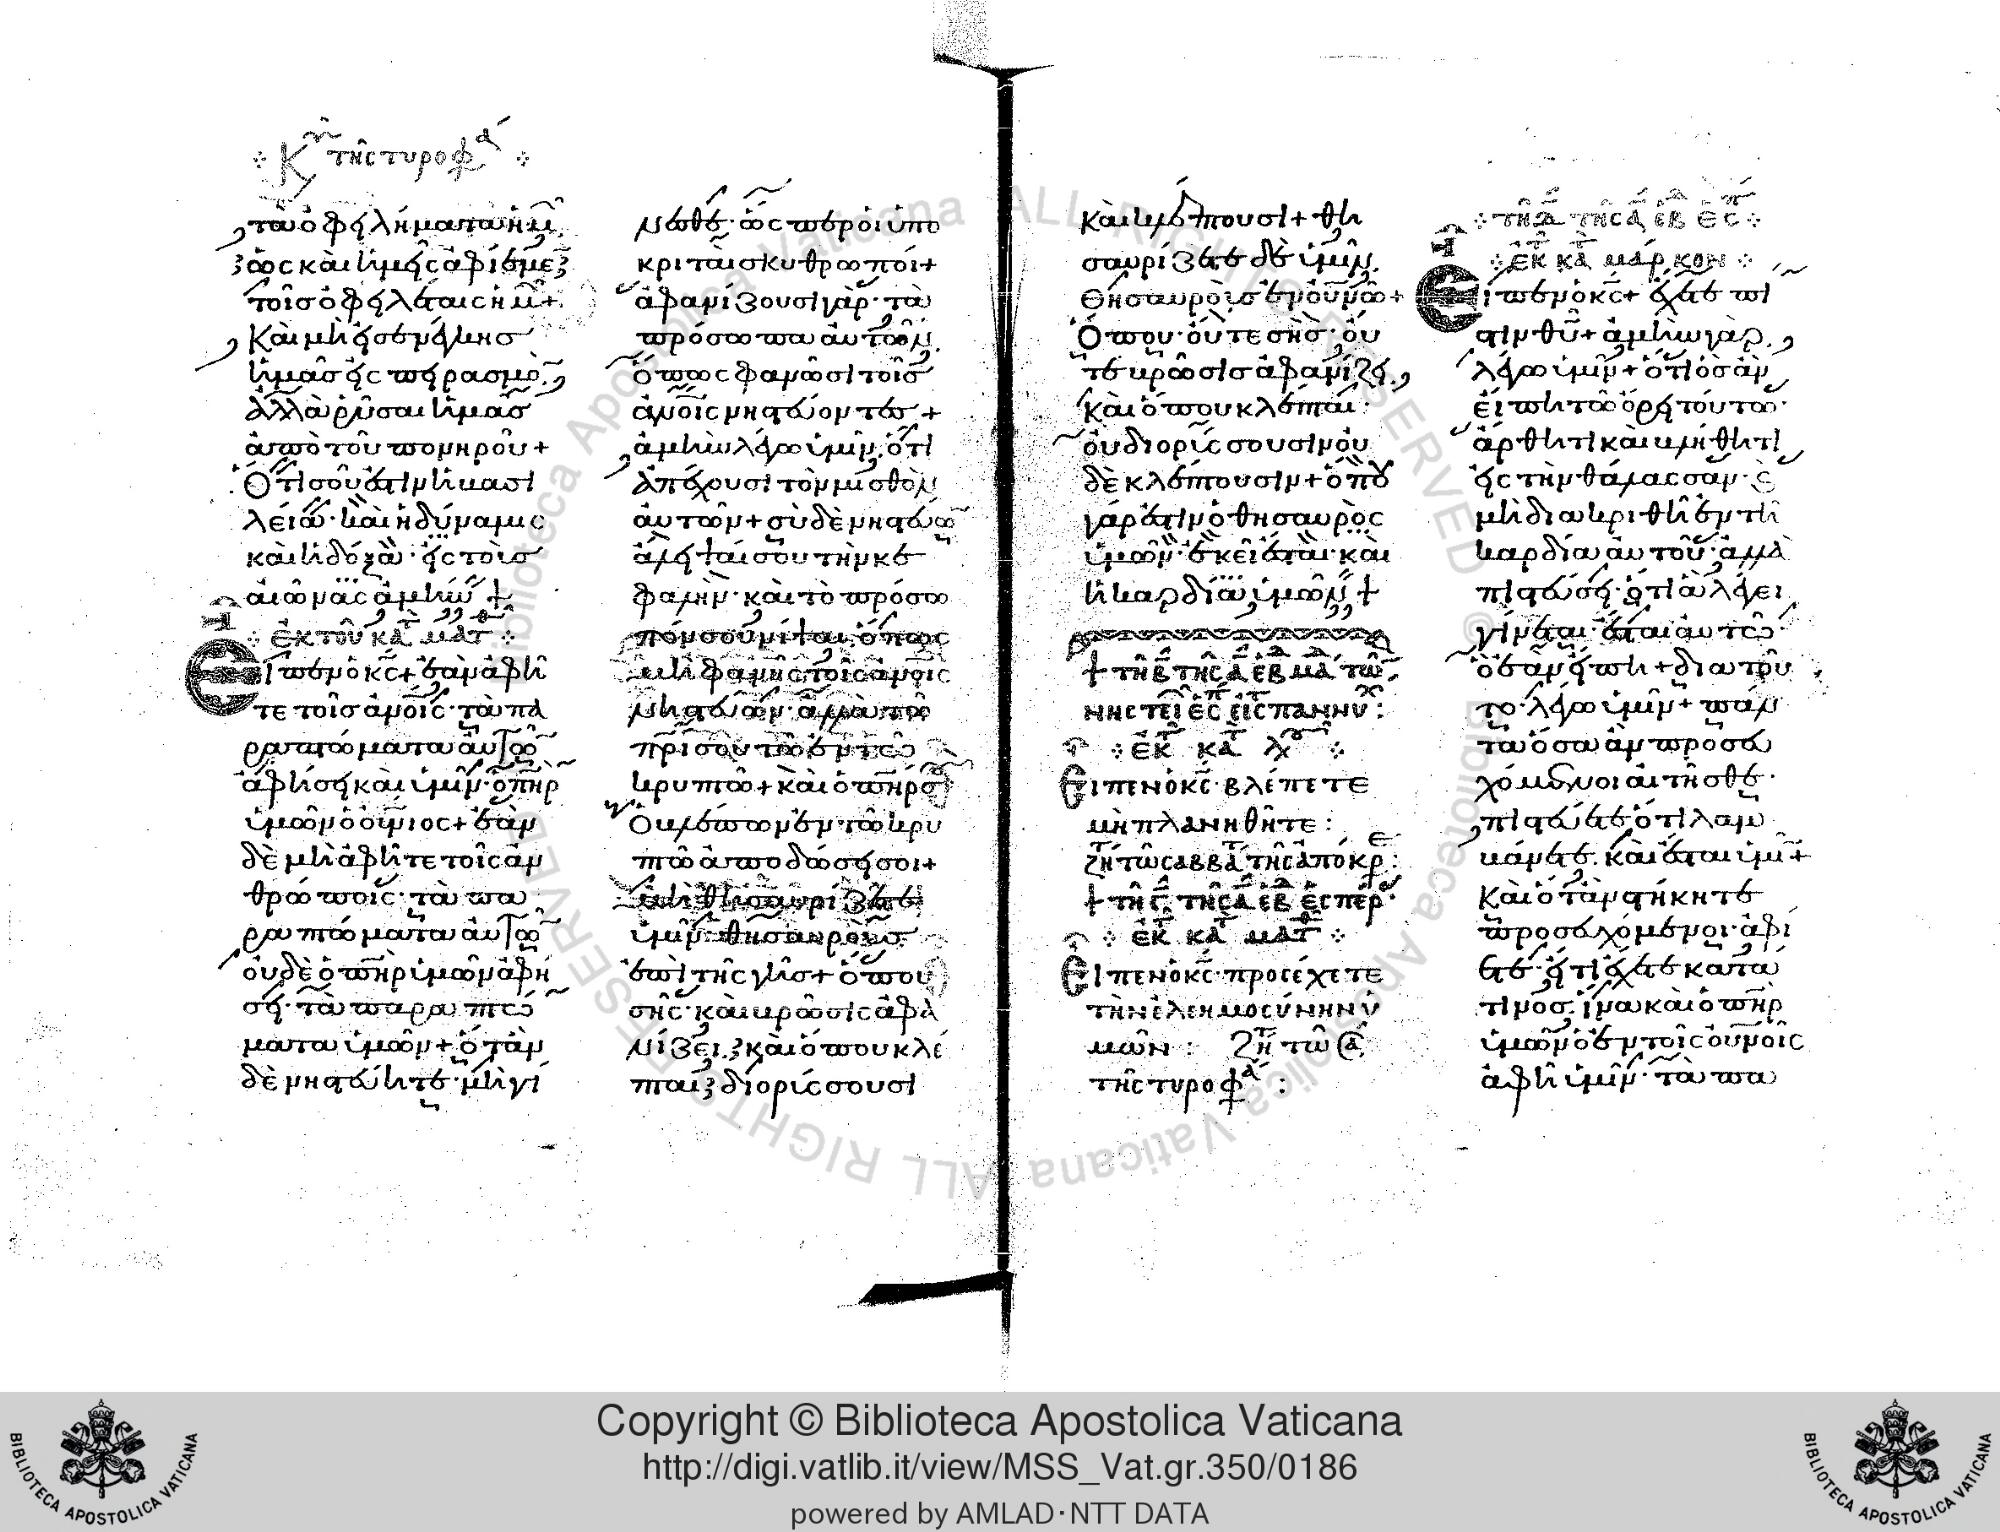 Κυ τῆς τυροφά
τὰ ὀφειλήματα ἡμῶν
ὡς καὶ ἡμεῖς ἀφίεμεν
τοῖς ὀφειλέταις ἡμῶν +
Καὶ μὴ εἰσενέγκης
ἡμᾶς εἰς πειρασμὸν
ἀλλὰ ῥῦσαι ἡμᾶς
ἀπὸ τοῦ πονηροῦ +
Ὅτι σοῦ ἐστιν ἡ βασι
λεία · καὶ ἡ δύναμις
καὶ ἡ δόξα · εἰς τοὺς
αἰῶνας ἀμήν +
ἐκ τοῦ κατ ματ
Εἶπεν ὁ κς + ἐὰν ἀφῆ
τε τοῖς ἀνοις · τὰ πα
ραπτώματα αὐτῶν
ἀφήσει καὶ ὑμῖν · ὁ πηρ
ὑμῶν ὁ οὐνιος + ἐὰν
δὲ μὴ ἀφῆτε τοῖς ἀν
θρώποις · τὰ πα
ραπτώματα αὐτῶν
οὐδὲ ὁ πηρ ὑμῶν ἀφή
σει · τὰ παραπτώ
ματα ὑμῶν + ὅταν
δὲ νηστεύητε · μὴ γί
νεσθε · ὥσπερ οἱ ὑπο
κριταὶ σκυθρωποί +
ἀφανίζουσι γὰρ · τὰ
πρόσωπα αὐτῶν
ὅπως φανῶσι τοῖς
ἀνοις νηστεύοντες +
ἀμὴν λέγω ὑμῖν, ὅτι
ἀπέχουσι τὸν μισθὸν
αὐτῶν + σὺ δὲ νηστεύων
ἄλειψαί σου τὴν κε
φαλὴν · καὶ τὸ πρόσω
πόν σου νίψαι, ὅπως
μὴ φανῆς τοῖς ἀνοις
νηστεύων · ἀλλὰ τῶ
πρι σου τῶ ἐν τῶ
κρυπτῶ + καὶ ὁ πηρ σου
Ὁ βλέπων ἐν τῶ κρυ
πτῶ ἀποδώσει σοι +
μὴ θησαυρίζετε
ὑμῖν θησαυροὺς
ἐπὶ τῆς γῆς + ὅπου
σὴς · καὶ βρῶσις ἀφα
νίζει · καὶ ὅπου κλέ
πται διορύσσουσι
καὶ κλέπτουσι + θη
σαυρίζετε δὲ ὑμῖν
θησαυροὺς ἐν οὐνῶ +
Ὅπου · οὔτε σὴς · οὔ
τε βρῶσις ἀφανίζει
καὶ ὅπου κλέπται
οὐ διορύσσουσιν οὐ
δὲ κλέπτουσιν + ὅπου
γάρ ἐστιν ὁ θησαυρὸς
ὑμῶν · ἐκεῖ ἔσται · καὶ
ἡ καρδία ὑμῶν +
+ τῆ β τῆς α ἑβ μα τῶν
νηστει ἑσ εἰς παννυ :
ἐκ κατ λου
Εἶπεν ὁ κς · βλέπετε
μὴ πλανηθῆτε :
ζητ τῶ σαββα τῆς ἀπόκρε :
+ τῆ ς τῆς α ἑβ ἑσπερ ·
ἐκ κατ ματ
Εἶπεν ὁ κς · προσέχετε
τὴν ἐλεημοσύνην ὑ
μῶν : ζητ τῶ σα
τῆς τυροφά :
τῆ δ τῆς α ἑβ ἑσπ
ἐκ κατ μάρκον
Εἶπεν ὁ κς + ἔχετε πί
στιν θυ + ἀμὴν γὰρ
λέγω ὑμῖν + ὅτι ὃς ἂν
εἴπη τῶ ὄρει τούτω ·
ἄρθητι καὶ βλήθητι
εἰς τὴν θάλασσαν · καὶ
μὴ διακριθῆ ἐν τῆ
καρδία αὐτοῦ · ἀλλὰ
πιστεύσει · ὅτι ἃ λέγει
γίνεται · ἔσται αὐτῶ ·
ὃ ἐὰν εἴπη + διὰ τοῦ
το · λέγω ὑμῖν + πάν
τα ὅσα ἂν προσευ
χόμενοι αἰτῆσθε ·
πιστεύετε ὅτι λαμ
βάνετε · καὶ ἔσται ὑμῖν +
Καὶ ὅταν στήκητε
προσευχόμενοι · ἀφί
ετε · εἴ τι ἔχετε κατά
τινος, ἵνα καὶ ὁ πηρ
ὑμῶν ὁ ἐν τοῖς οὐνοις
ἀφῆ ὑμῖν · τὰ πα
Copyright © Biblioteca Apostolica Vaticana
http://digi.vatlib.it/view/MSS_Vat.gr.350/0186
powered by AMLAD·NTT DATA
BIBLIOTECA APOSTOLICA VATICANA
BIBLIOTECA APOSTOLICA VATICANA